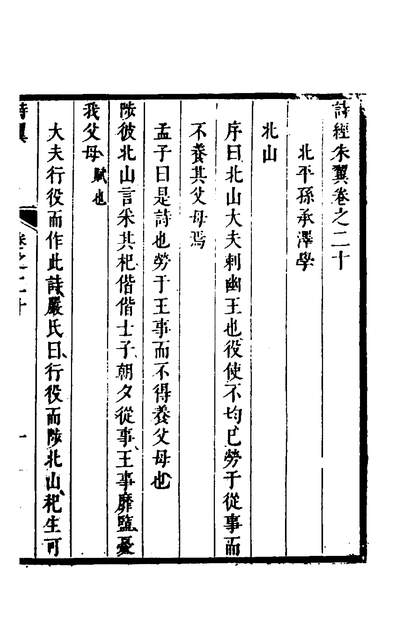 詩經朱翼卷之二十
北平孫承澤學
北山
序曰北山大夫刺幽王也役使不均已勞于從事而
不養其父母焉
孟子曰是詩也勞于王事而不得養父母也
陟彼北山言采其杞偕偕士子朝夕從事王事靡盬憂
我父母賦也
大夫行役而作此詩嚴氏曰行役而陟北山杞生可
詩翼
卷之二十
一